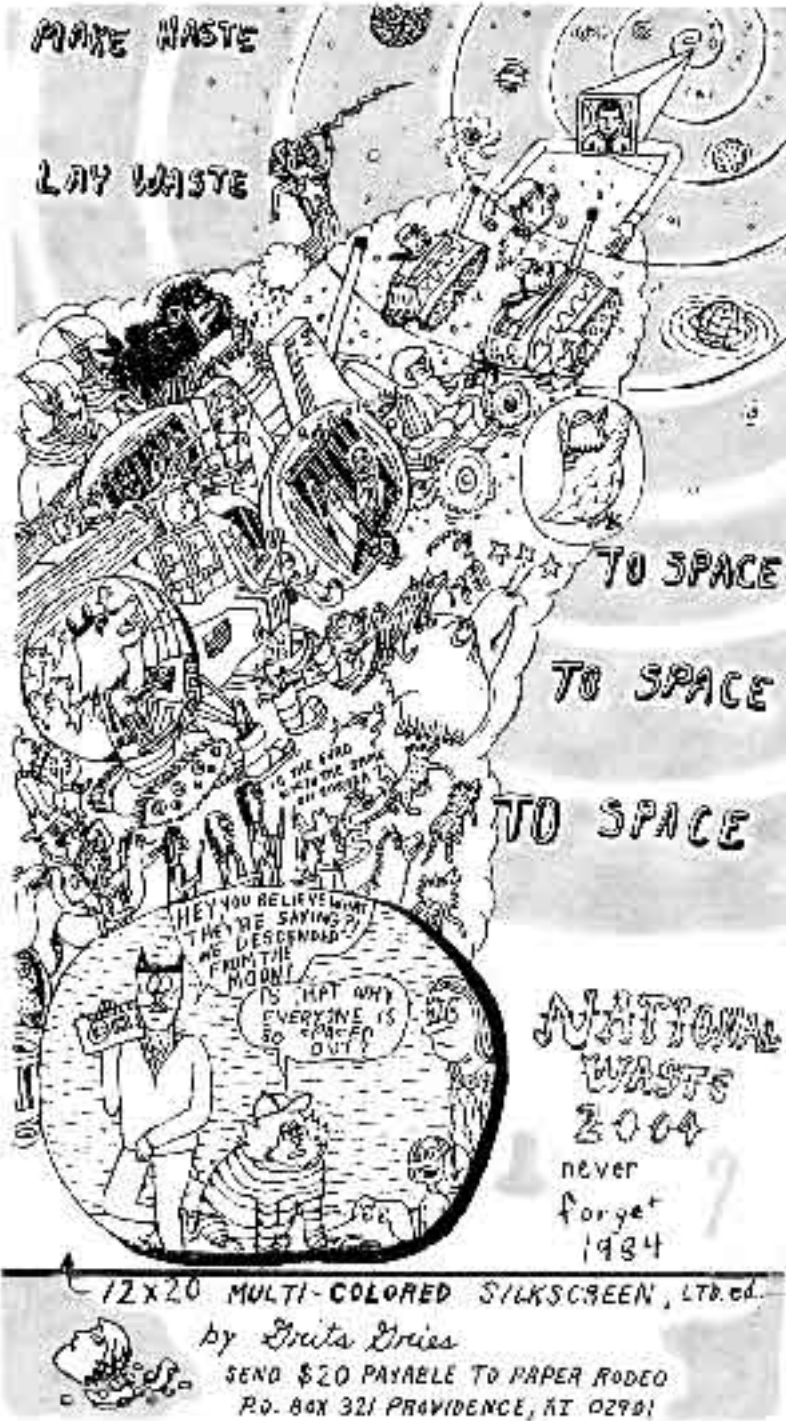 MAKE HASTE
LAY WASTE
TO SPACE
TO SPACE
TO SPACE
IS THE
HEY YOU BELIEVE WHAT
THEY'RE SAYING?
WE DESCENDED
FROM THE
MOON!
IS THAT WHY
EVERYONE IS
SO SPACED
OUT?
NATIONAL
WASTE
2004
never
forget
1984
12x20 MULTI-COLORED SILKSCREEN, LTD. ed.
by Grits Gries
SEND $20 PAYABLE TO PAPER RODEO
P.O. BOX 321 PROVIDENCE, RI 02901